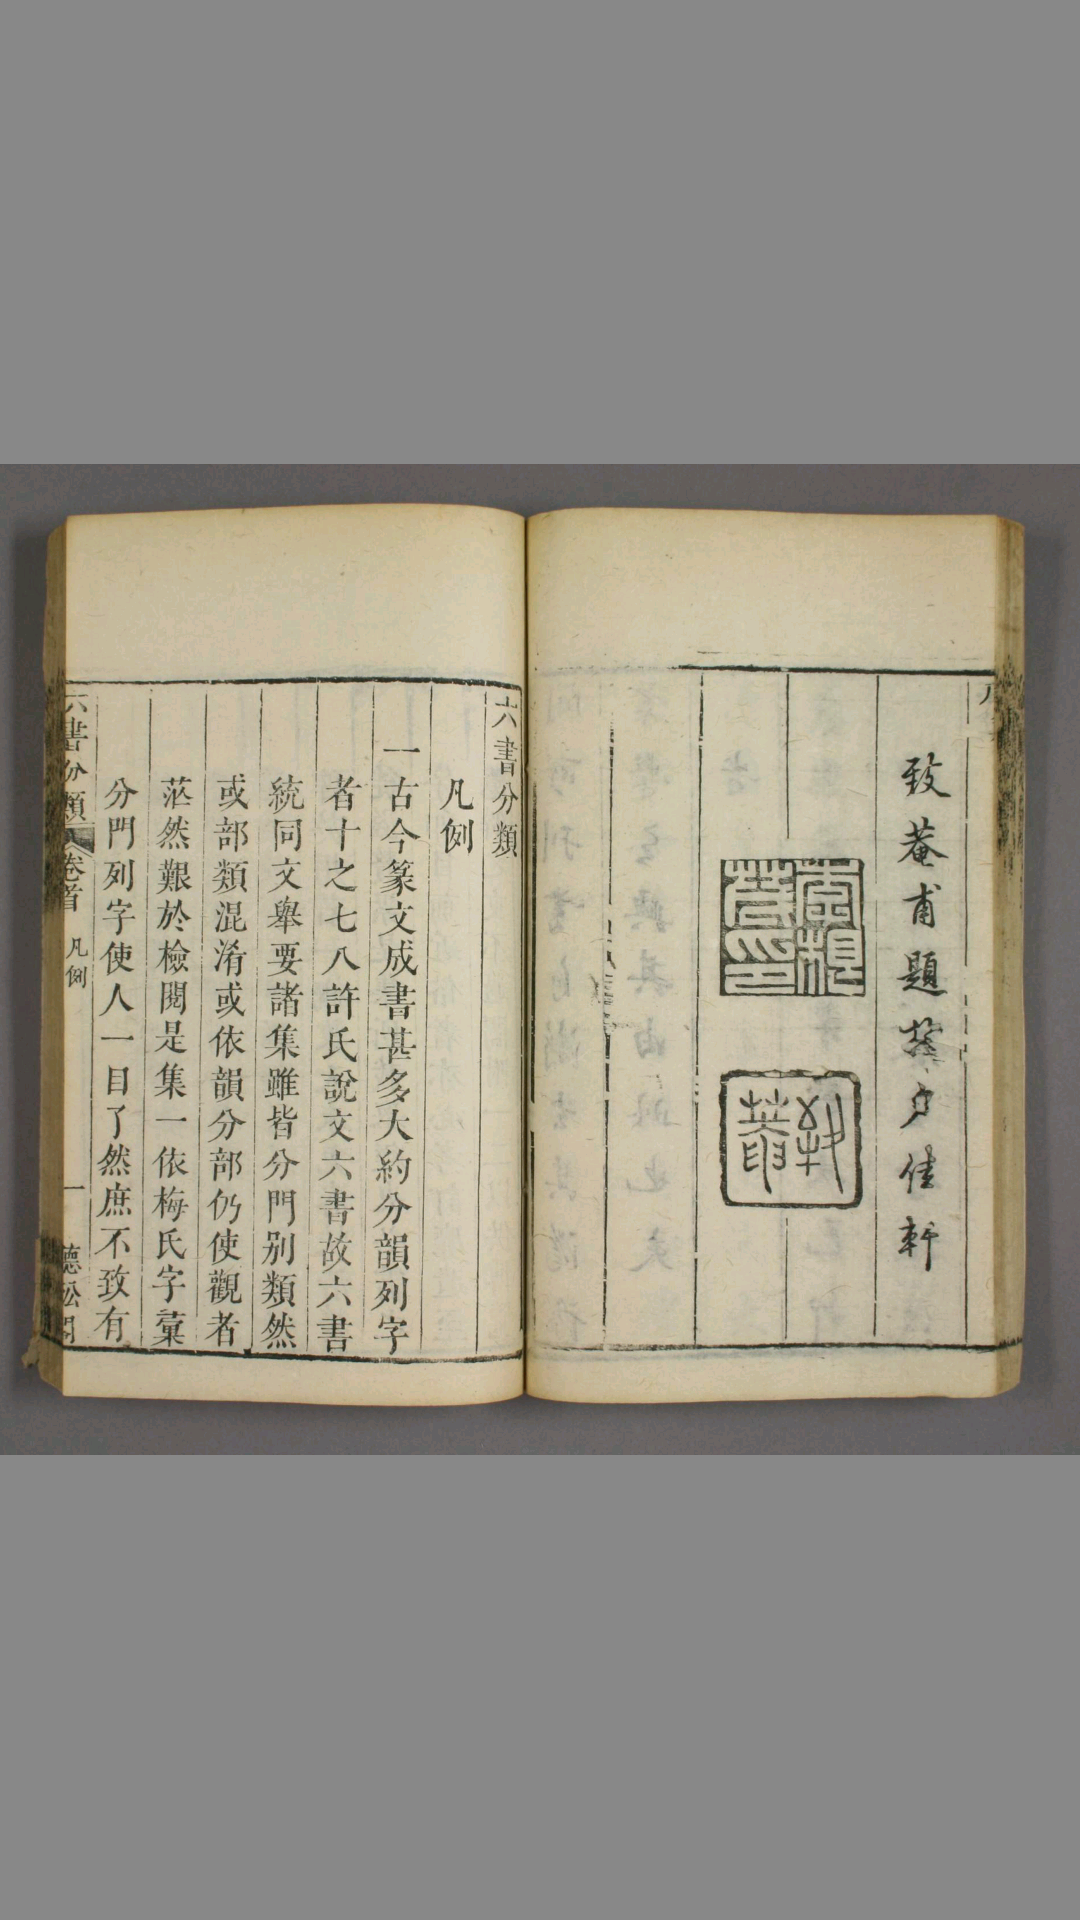 致菴甫題於夕佳軒
六書分類
凡例
一古今篆文成書甚多大約分韻列字
者十之七八許氏說文六書故六書
統同文舉要諸集雖皆分門別類然
或部類混淆或依韻分部仍使觀者
茫然艱於檢閱是集一依梅氏字彙
分門列字使人一目了然庶不致有
六書分類 卷首 凡例 一 聽松閣